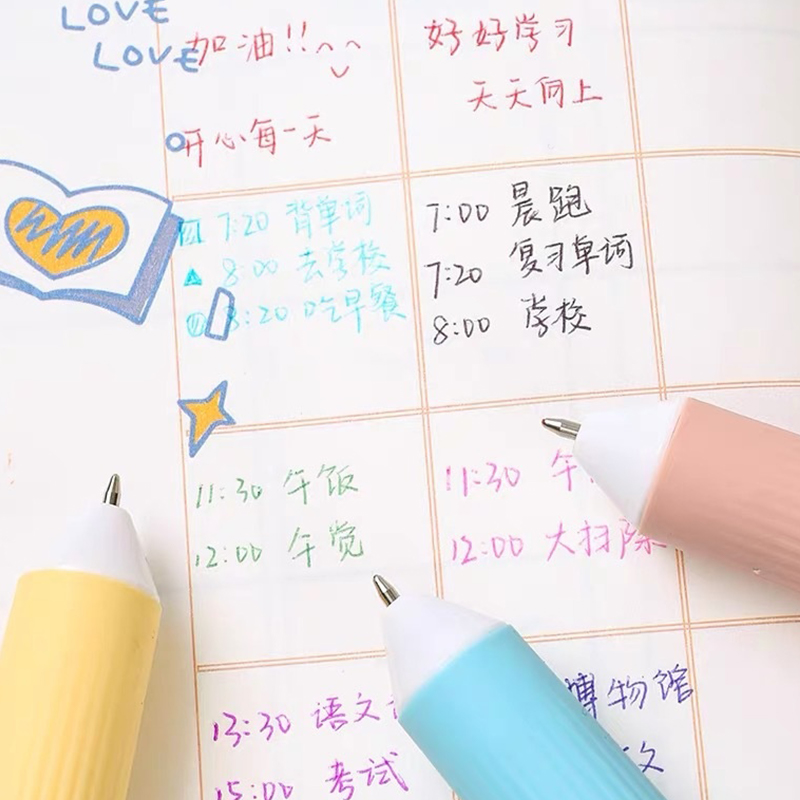 LOVE
LOVE
加油!!
开心每一天
好好学习
天天向上
7:20 背单词
8:00 去学校
8:20 吃早餐
7:00 晨跑
7:20 复习单词
8:00 学校
11:30 午饭
12:00 午觉
11:30 午
12:00 大扫除
13:30 语文
15:00 考试
博物馆